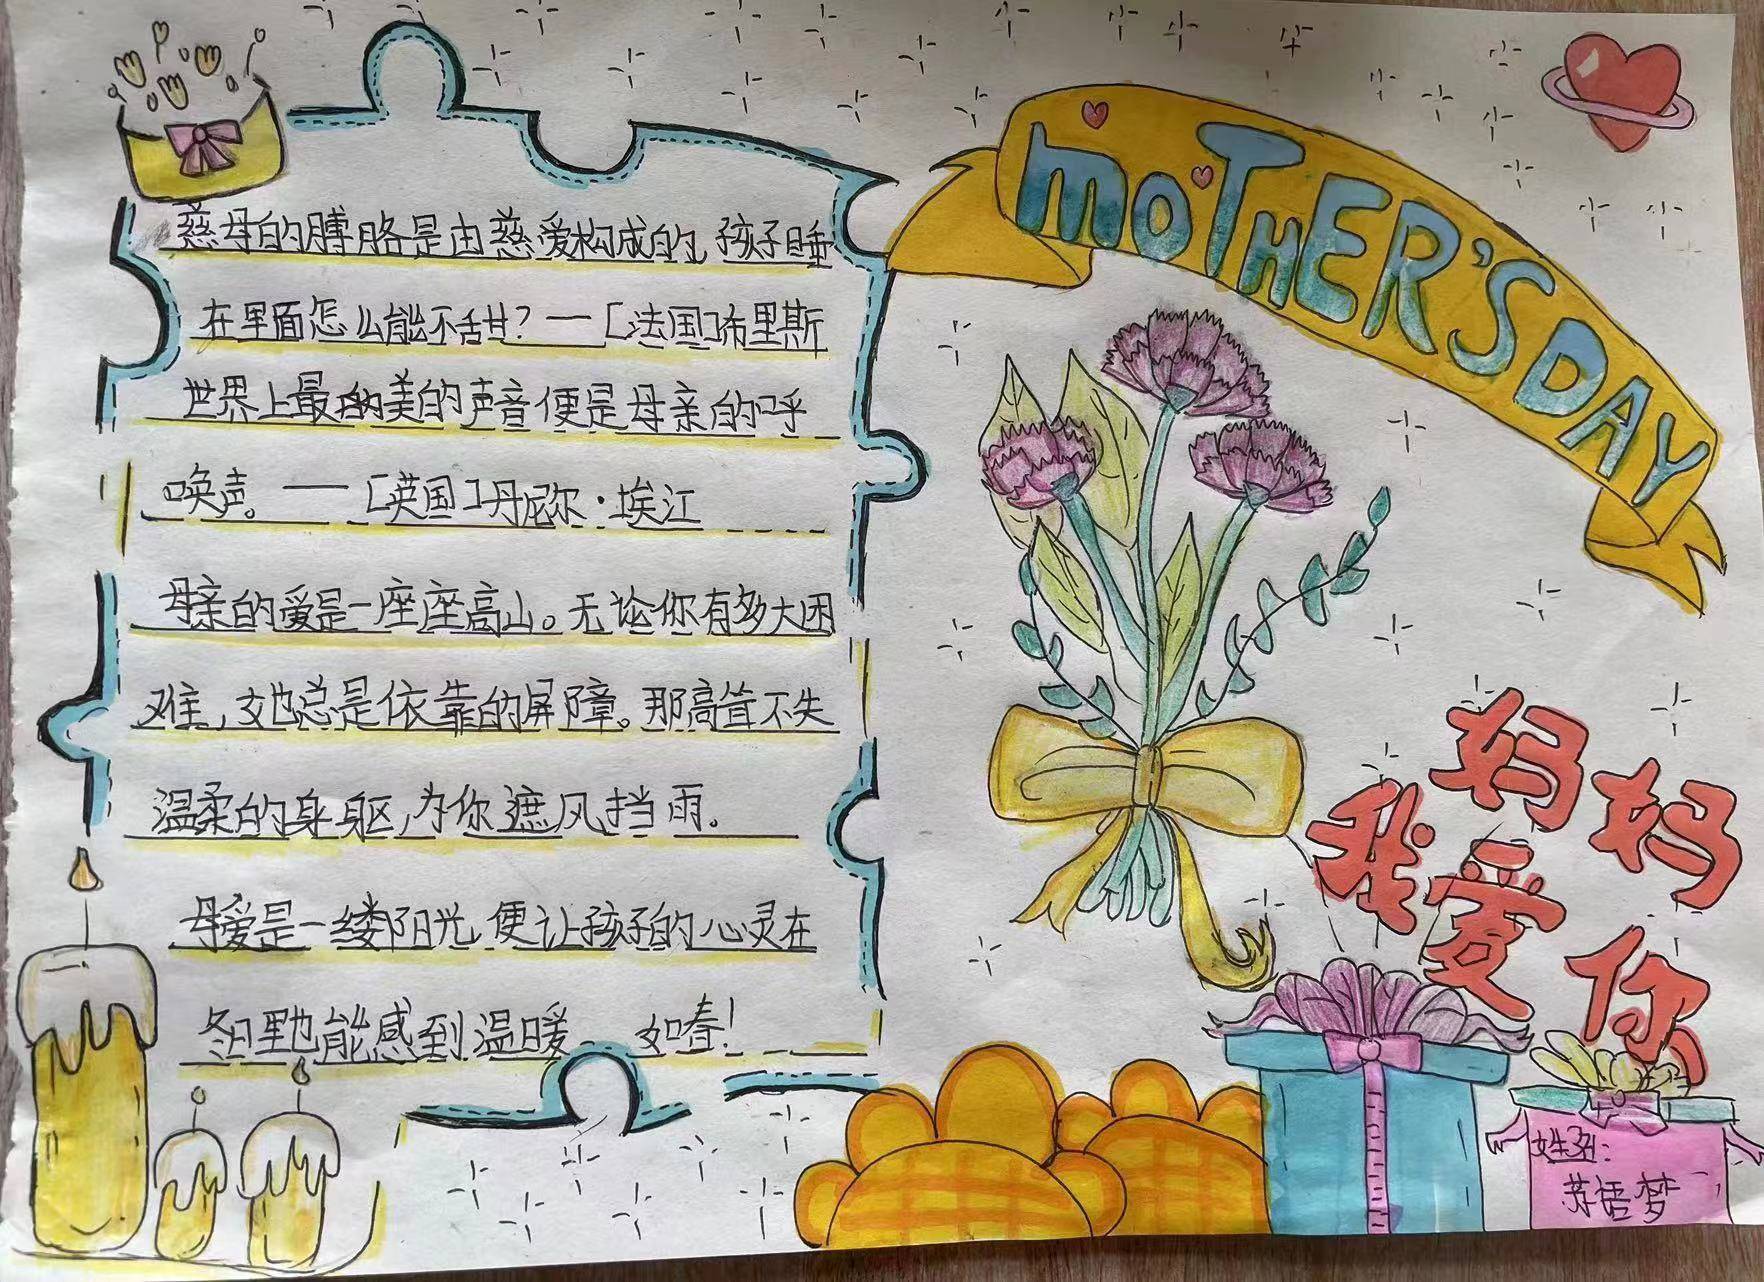 慈母的膊胳是由慈爱构成的,孩子睡
在里面怎么能不甜?——[法国]布里斯
世界上最的美的声音便是母亲的呼
唤声。——[英国]丹尼尔·埃江
母亲的爱是一座座高山。无论你有多大困
难,她总是依靠的屏障。那高耸不失
温柔的身躯,为你遮风挡雨.
母爱是一缕阳光,便让孩子的心灵在
冬日里也能感到温暖 如春!
MOTHER'S DAY
妈妈
我爱你
姓名:
苏语梦